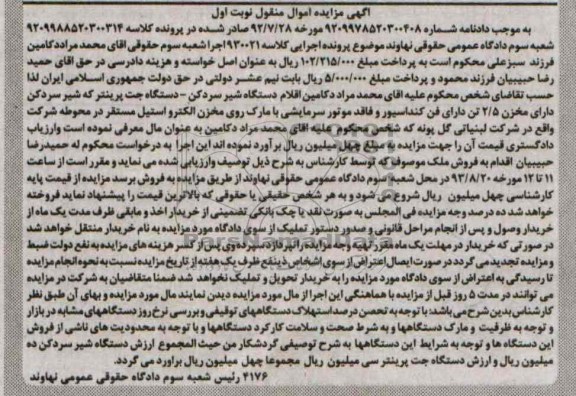 آگهی مزایده اموال منقول نوبت اول
به موجب دادنامه شماره ۹۲۰۹۹۷۸۵۲۰۳۰۰۴۰۸ مورخه ۹۲/۷/۲۸ صادر شده در پرونده کلاسه ۹۲۰۹۹۸۸۵۲۰۳۰۰۳۱۴
شعبه سوم دادگاه عمومی حقوقی نهاوند موضوع پرونده اجرایی کلاسه ۹۳۰۰۲۱ اجرا شعبه سوم حقوقی آقای محمد مراد دکامین
فرزند سبزعلی محکوم است به پرداخت مبلغ ۱۰۲/۲۱۵/۰۰۰ ریال به عنوان اصل خواسته و هزینه دادرسی در حق آقای حمید
رضا حبیبیان فرزند محمود و پرداخت مبلغ ۵/۰۰۰/۰۰۰ ریال بابت نیم عشر دولتی در حق دولت جمهوری اسلامی ایران لذا
حسب تقاضای شخص محکوم علیه آقای محمد مراد دکامین اقلام دستگاه شیر سردکن - دستگاه جت پرینتر که شیر سردکن
دارای مخزن ۲/۵ تن دارای فن کندانسیور و فاقد موتور سرمایشی با مارک روی مخزن الکترو استیل مستقر در محوطه شرکت
واقع در شرکت لبنیاتی گل پونه که شخص محکوم علیه آقای محمد مراد دکامین به عنوان مال معرفی نموده است وارزیاب
دادگستری قیمت آن را جهت مزایده به مبلغ چهل میلیون ریال بر آورد نموده اند این اجرا به درخواست محکوم له حمیدرضا
حبیبیان اقدام به فروش ملک موصوف که توسط کارشناس به شرح ذیل توصیف وارزیابی شده می نماید و مقرر است از ساعت
۱۱ تا ۱۲ مورخه ۹۳/۸/۲۰ در محل شعبه سوم دادگاه عمومی حقوقی نهاوند از طریق مزایده به فروش برسد مزایده از قیمت پایه
کارشناسی چهل میلیون ریال شروع می شود و به هر شخص حقیقی یا حقوقی که بالاترین قیمت را پیشنهاد نماید فروخته
خواهد شد ده درصد وجه مزایده فی المجلس به صورت نقد یا چک بانکی تضمینی از خریدار اخذ و مابقی ظرف مدت یک ماه از
خریدار وصول و پس از انجام مراحل قانونی و صدور دستور تملیک از سوی دادگاه مورد مزایده به نام خریدار منتقل خواهد شد
در صورتی که خریدار در مهلت یک ماه مابقی وجه مزایده را نپردازد سپرده وی پس از کسر هزینه های مزایده به نفع دولت ضبط
و مزایده تجدید می گردد در صورت ایصال اعتراض از سوی اشخاص ذینفع ظرف یک هفته از تاریخ مزایده نسبت به نحوه انجام مزایده
تا رسیدگی به اعتراض از سوی دادگاه مورد مزایده را به خریدار تحویل و تملیک نخواهد شد ضمنا متقاضیان به شرکت در مزایده
می توانند در مدت ۵ روز قبل از مزایده با هماهنگی این اجرا از مال مورد مزایده دیدن نمایند مال مورد مزایده و بهای آن طبق نظر
کارشناس بدین شرح می باشد: با توجه به تحصن درصد استهلاک دستگاههای توقیفی و بررسی نرخ روز دستگاههای مشابه در بازار
و توجه به ظرفیت و مارک دستگاهها و به شرط صحت و سلامت کارکرد دستگاهها و با توجه به محدودیت های ناشی از فروش
این دستگاه ها و توجه به شرایط این دستگاهها به شرح توصیفی گردشکار من حیث المجموع ارزش دستگاه شیر سردکن ده
میلیون ریال و ارزش دستگاه جت پرینتر سی میلیون ریال مجموعا چهل میلیون ریال براورد می گردد.
۴۱۷۶ رئیس شعبه سوم دادگاه حقوقی عمومی نهاوند